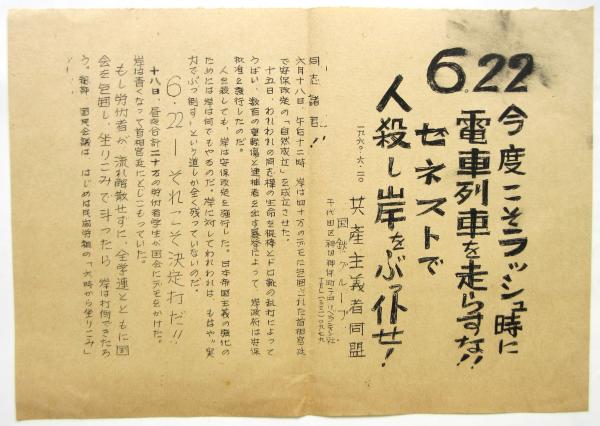 6.22
今度こそラッシュ時に
電車列車を走らすな!!
ゼネストで
人殺し岸をぶっ倒せ!
一九六〇・六・二〇
共産主義者同盟
国鉄グループ
千代田区神田神保町
同志諸君!!
六月十八日、午后十二時、岸は四十万のデモに包囲された首相官邸
で安保改定の「自然成立」を成立させた。
十五日、われわれの同志樺の生命を棍棒とドロ靴の乱打によって
うばい、数百の重軽傷と逮捕者を出す暴挙によって、岸政府は安保
批准を強行したのだ。
人を殺しても、岸は安保改定を強行した。日本帝国主義の強化の
ためには岸は何でもやるのだ。岸に対してわれわれは、もはや"実
力でぶっ倒す"という道しか全く残っていないのだ。
6・22―それこそ決定打だ!!
十八日、昼夜合計二十万の労仂者学生が国会にデモをかけた。
岸は青くなって首相官邸にとじこもっていた。
もし労仂者が、流れ解散せずに、全学連とともに国
会を包囲し、坐りこみで斗ったら、岸は打倒できたろ
う。総評、国民会議は、はじめは民高労組の「六時から坐りこみ」